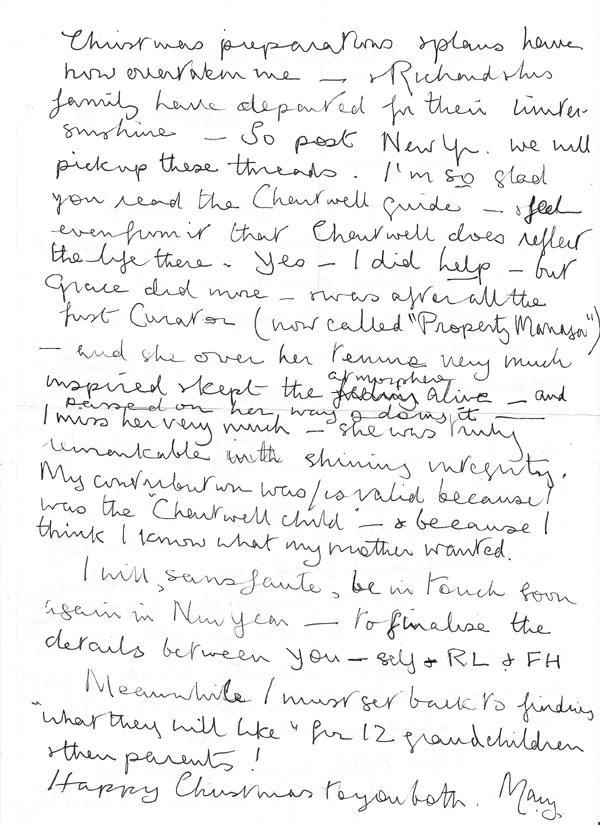 Christmas preparations & plans have
now overtaken me — & Richard & his
family have departed for their winter-
sunshine — So post New Yr. we will
pick up these threads. I'm so glad
you read the Chartwell guide — & feel
even from it that Chartwell does reflect
the life there. Yes — I did help — but
Grace did more — & was after all the
first Curator (now called "Property Manager")
— and she over her tenure very much
inspired & kept the atmosphere alive — and
passed on her way of doing it —
I miss her very much — she was truly
remarkable with shining integrity.
My contribution was/is valid because I
was the "Chartwell child" — & because I
think I know what my mother wanted.
I will, sans faute, be in touch soon
again in New Year — to finalise the
details between you — self & RL & FH
Meanwhile I must get back to finding
"what they will like" for 12 grandchildren
& their parents!
Happy Christmas to you both. Mary